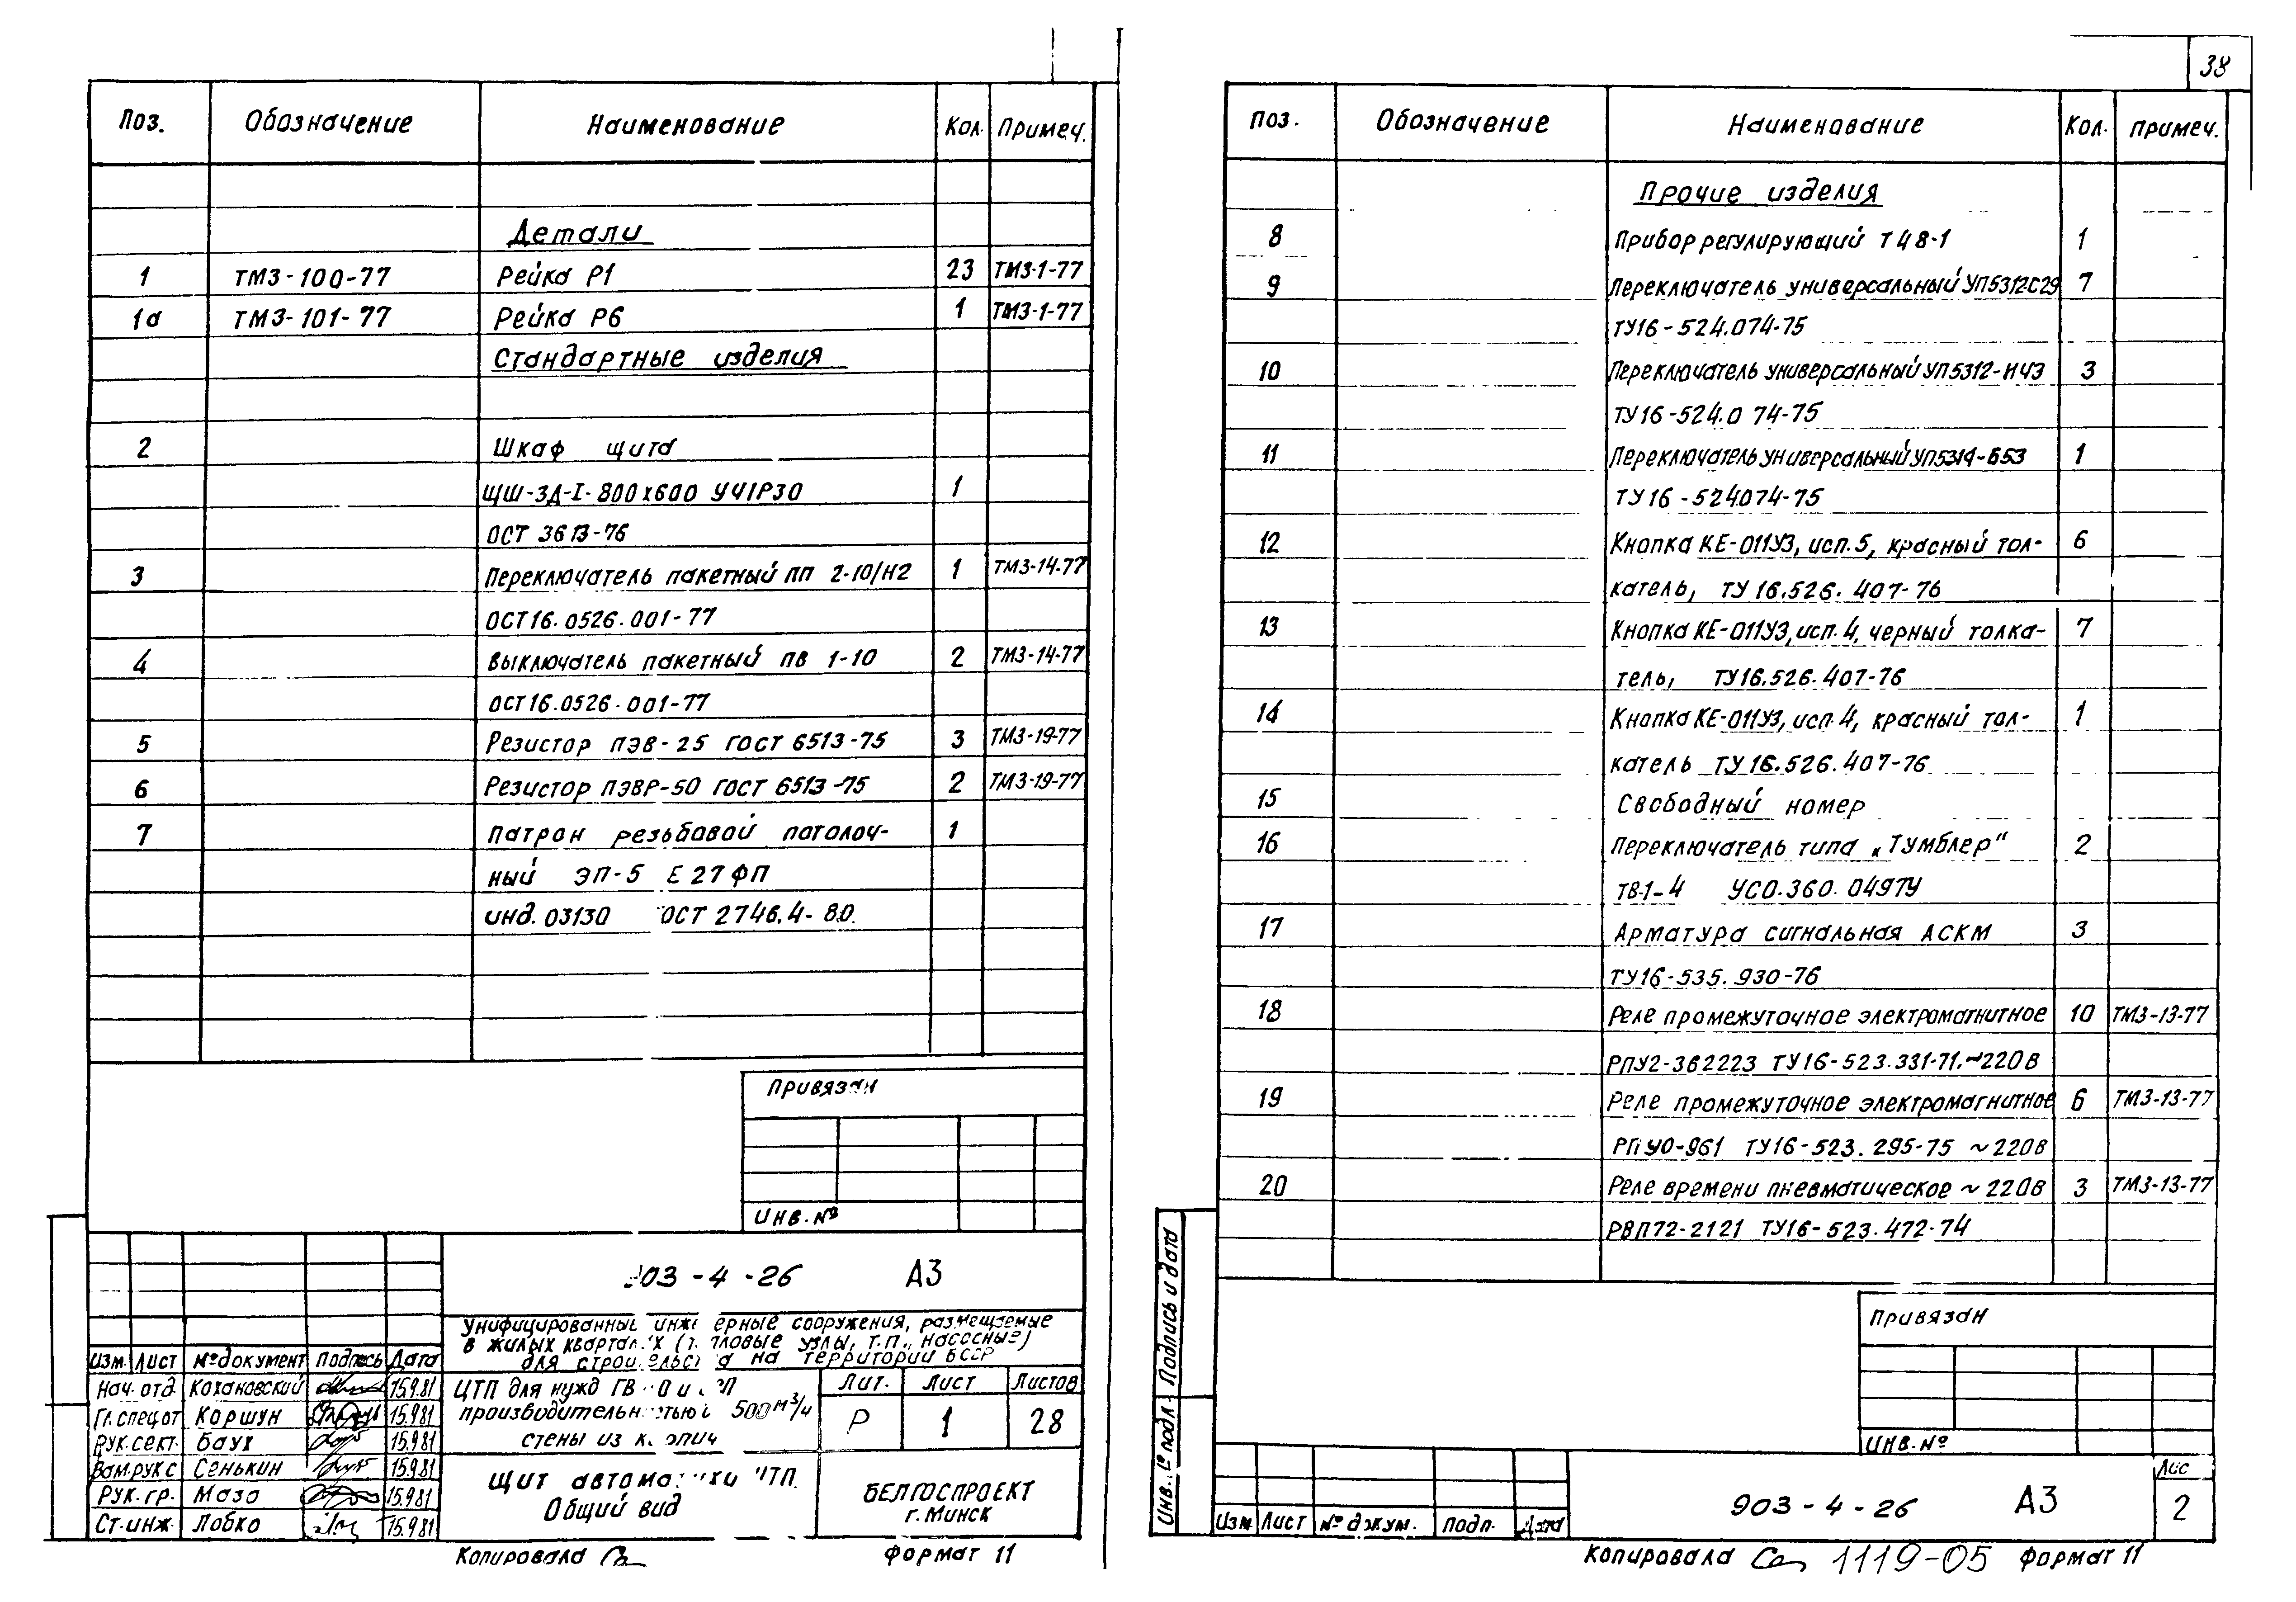 Поз. Обозначение Наименование Кол. Примеч.
Детали
1 ТМЗ-100-77 Рейка Р1 23 ТМЗ-1-77
1а ТМЗ-101-77 Рейка Р6 1 ТМЗ-1-77
Стандартные изделия
2 Шкаф щита
ЩШ-ЗД-I-800х600 УЧ1Р30 1
ОСТ 3613-76
3 Переключатель пакетный ПП 2-10/Н2 1 ТМЗ-14-77
ОСТ16.0526.001-77
4 Выключатель пакетный ПВ 1-10 2 ТМЗ-14-77
ОСТ16.0526.001-77
5 Резистор ПЭВ-25 ГОСТ 6513-75 3 ТМЗ-19-77
6 Резистор ПЭВР-50 ГОСТ 6513-75 2 ТМЗ-19-77
7 Патрон резьбавой потолоч- 1
ный ЭП-5 Е27ФП
инд.03130 ОСТ 2746.4-80.
Привязан
ИНВ.№
903-4-26 А3
Унифицированные инженерные сооружения, размещаемые
в жилых кварталах (тепловые узлы, т.п., насосные)
для строительства на территории БССР
Изм. Лист №документ Подпись Дата
Нач.отд. Кохановский 15.9.81
Гл.спец.от Коршун 15.9.81
Рук.сект. Баух 15.9.81
Зам.рук с Сенькин 15.9.81
Рук.гр. Мазо 15.9.81
Ст.инж. Лобко 15.9.81
ЦТП для нужд ГВ О и
производительностью 500м³/ч
стены из кирпич
Лит. Лист Листов
Р 1 28
Щит автоматики ЦТП.
Общий вид
БЕЛГОСПРОЕКТ
г. Минск
Копировала Формат 11
38
Поз. Обозначение Наименование Кол. Примеч.
Прочие изделия
8 Прибор регулирующий Т48-1 1
9 Переключатель универсальный УП5312С29 7
ТУ16-524.074-75
10 Переключатель универсальный УП5312-НЧ3 3
ТУ16-524.074-75
11 Переключатель универсальный УП5314-Б53 1
ТУ16-524074-75
12 Кнопка КЕ-011У3, исп.5, красный тол- 6
катель, ТУ 16.526.407-76
13 Кнопка КЕ-011У3, исп.4, черный толка- 7
тель, ТУ16.526.407-76
14 Кнопка КЕ-011У3, исп.4, красный тол- 1
катель ТУ 16.526.407-76
15 Свободный номер
16 Переключатель типа „Тумблер" 2
ТВ-1-4 УСО.360.049ТУ
17 Арматура сигнальная АСКМ 3
ТУ16-535.930-76
18 Реле промежуточное электромагнитное 10 ТМЗ-13-77
РПУ2-362223 ТУ16-523.331-71.~220В
19 Реле промежуточное электромагнитное 6 ТМЗ-13-77
РПУ0-961 ТУ16-523.295-75 ~220В
20 Реле времени пневматическое ~220В 3 ТМЗ-13-77
РВП72-2121 ТУ16-523.472-74
Привязан
ИНВ.№
Инв.№ подл. Подпись и дата
Изм Лист № докум. Подп. Дата
903-4-26 А3
Лис
2
Копировала 1119-05 Формат 11